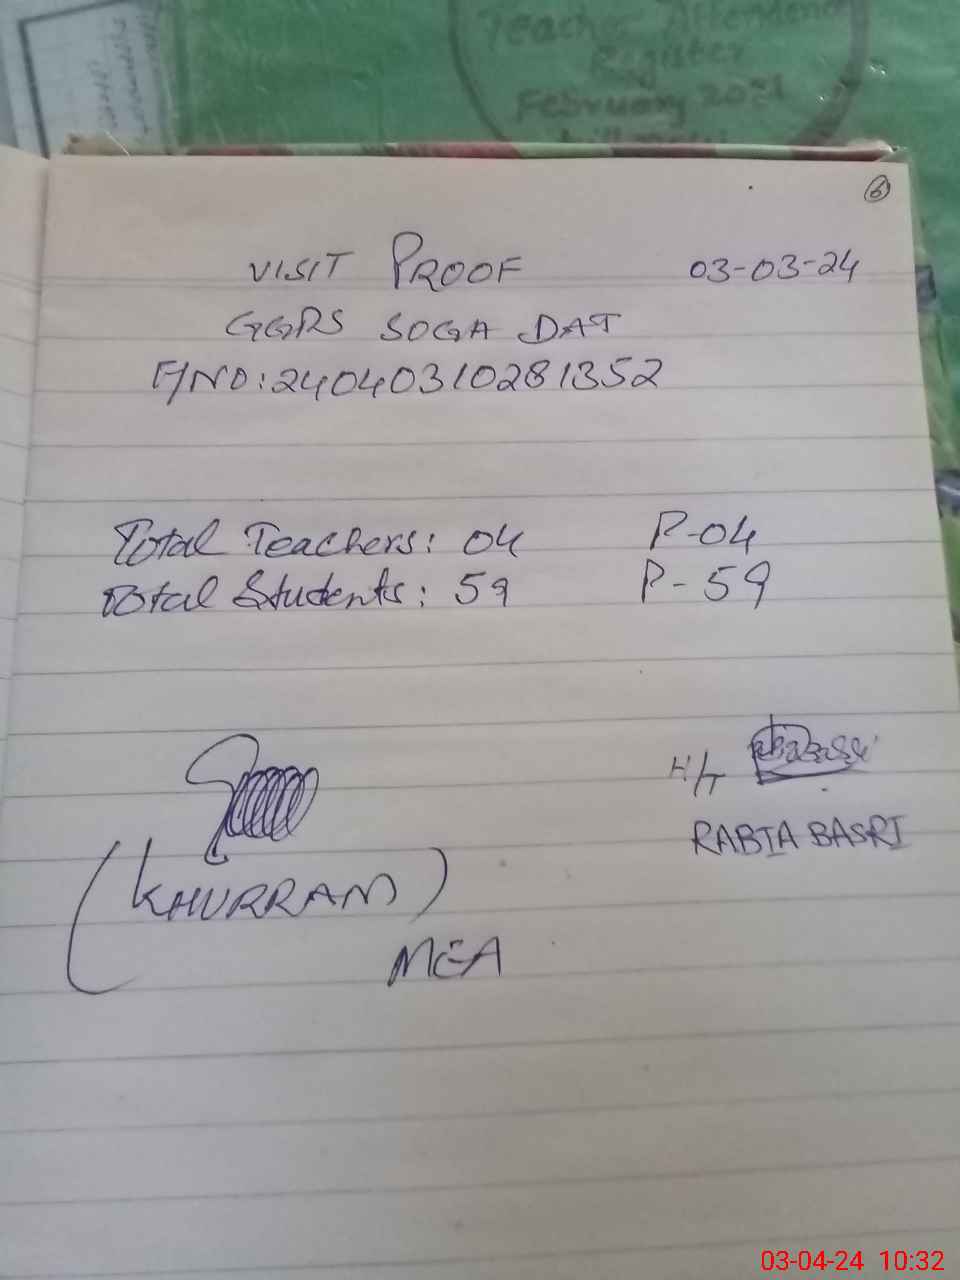 Teacher Attendence
Register
February 2021
6
VISIT PROOF 03-03-24
GGPS SOGA DAT
F/NO:24040310281352
Total Teachers: 04 P-04
Total Students: 59 P-59
H/T
RABIA BASRI
(KHURRAM)
MEA
03-04-24 10:32